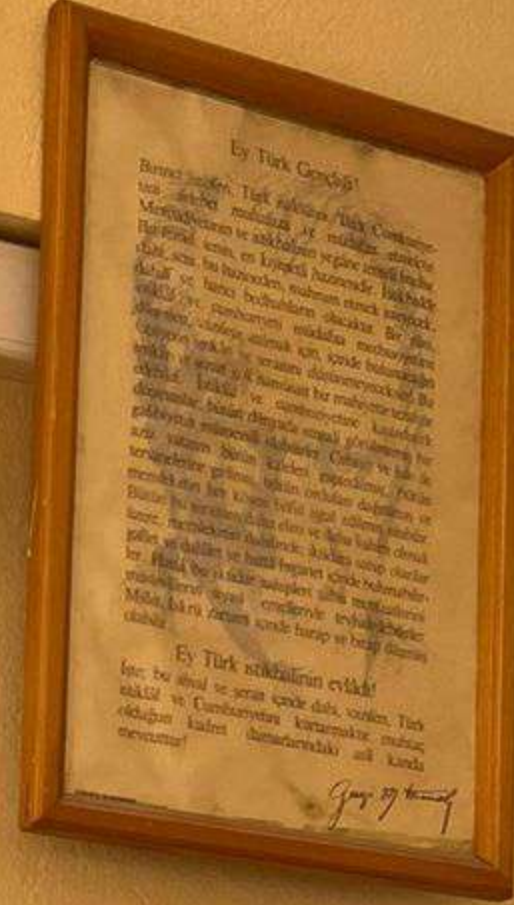 Ey Türk Gençliği!
Birinci vazifen, Türk istiklâlini, Türk Cumhuriye-
tini, ilelebet muhafaza ve müdafaa etmektir.
Mevcudiyetinin ve istikbalinin yegâne temeli budur.
Bu temel, senin, en kıymetli hazinendir. İstikbalde
dahi, seni, bu hazineden, mahrum etmek isteyecek,
dahilî ve haricî bedhahların olacaktır. Bir gün,
istiklâl ve cumhuriyeti müdafaa mecburiyetine
düşersen, vazifeye atılmak için, içinde bulunacağın
vaziyetin imkân ve şeraitini düşünmeyeceksin! Bu
imkân ve şerait, çok nâmüsait bir mahiyette tezahür
edebilir. İstiklâl ve cumhuriyetine kastedecek
düşmanlar, bütün dünyada emsali görülmemiş bir
galibiyetin mümessili olabilirler. Cebren ve hile ile
aziz vatanın bütün kaleleri zaptedilmiş, bütün
tersanelerine girilmiş, bütün orduları dağıtılmış ve
memleketin her köşesi bilfiil işgal edilmiş olabilir.
Bütün bu şeraitten daha elim ve daha vahim olmak
üzere, memleketin dahilinde, iktidara sahip olanlar
gaflet ve dalâlet ve hattâ hıyanet içinde bulunabilir-
ler. Hattâ bu iktidar sahipleri şahsî menfaatlerini,
müstevlilerin siyasî emelleriyle tevhit edebilirler.
Millet, fakrü zaruret içinde harap ve bitap düşmüş
olabilir.
Ey Türk istikbalinin evlâdı!
İşte, bu ahval ve şerait içinde dahi, vazifen, Türk
istiklâl ve Cumhuriyetini kurtarmaktır, muhtaç
olduğun kudret damarlarındaki asil kanda
mevcuttur!
Gazi M Kemal